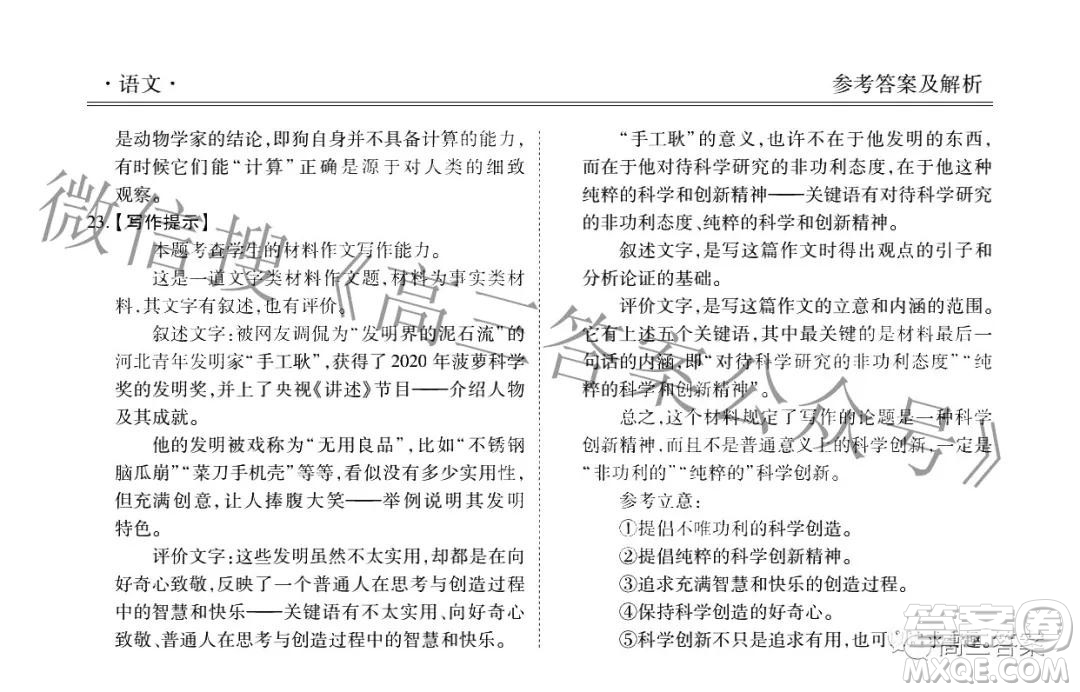 ·语文·
参考答案及解析
是动物学家的结论,即狗自身并不具备计算的能力,
有时候它们能“计算”正确是源于对人类的细致
观察。
23.【写作提示】
本题考查学生的材料作文写作能力。
这是一道文字类材料作文题,材料为事实类材
料,其文字有叙述,也有评价。
叙述文字:被网友调侃为“发明界的泥石流”的
河北青年发明家“手工耿”,获得了2020年菠萝科学
奖的发明奖,并上了央视《讲述》节目——介绍人物
及其成就。
他的发明被戏称为“无用良品”,比如“不锈钢
脑瓜崩”“菜刀手机壳”等等,看似没有多少实用性,
但充满创意,让人捧腹大笑——举例说明其发明
特色。
评价文字:这些发明虽然不太实用,却都是在向
好奇心致敬,反映了一个普通人在思考与创造过程
中的智慧和快乐——关键语有不太实用、向好奇心
致敬、普通人在思考与创造过程中的智慧和快乐。
“手工耿”的意义,也许不在于他发明的东西,
而在于他对待科学研究的非功利态度,在于他这种
纯粹的科学和创新精神——关键语有对待科学研究
的非功利态度、纯粹的科学和创新精神。
叙述文字,是写这篇作文时得出观点的引子和
分析论证的基础。
评价文字,是写这篇作文的立意和内涵的范围。
它有上述五个关键语,其中最关键的是材料最后一
句话的内涵,即“对待科学研究的非功利态度”“纯
粹的科学和创新精神”。
总之,这个材料规定了写作的论题是一种科学
创新精神,而且不是普通意义上的科学创新,一定是
“非功利的”“纯粹的”科学创新。
参考立意:
①提倡不唯功利的科学创造。
②提倡纯粹的科学创新精神。
③追求充满智慧和快乐的创造过程。
④保持科学创造的好奇心。
⑤科学创新不只是追求有用,也可
微信搜《高三答案公众号》
答案圈
高三答案
MXQE.COM